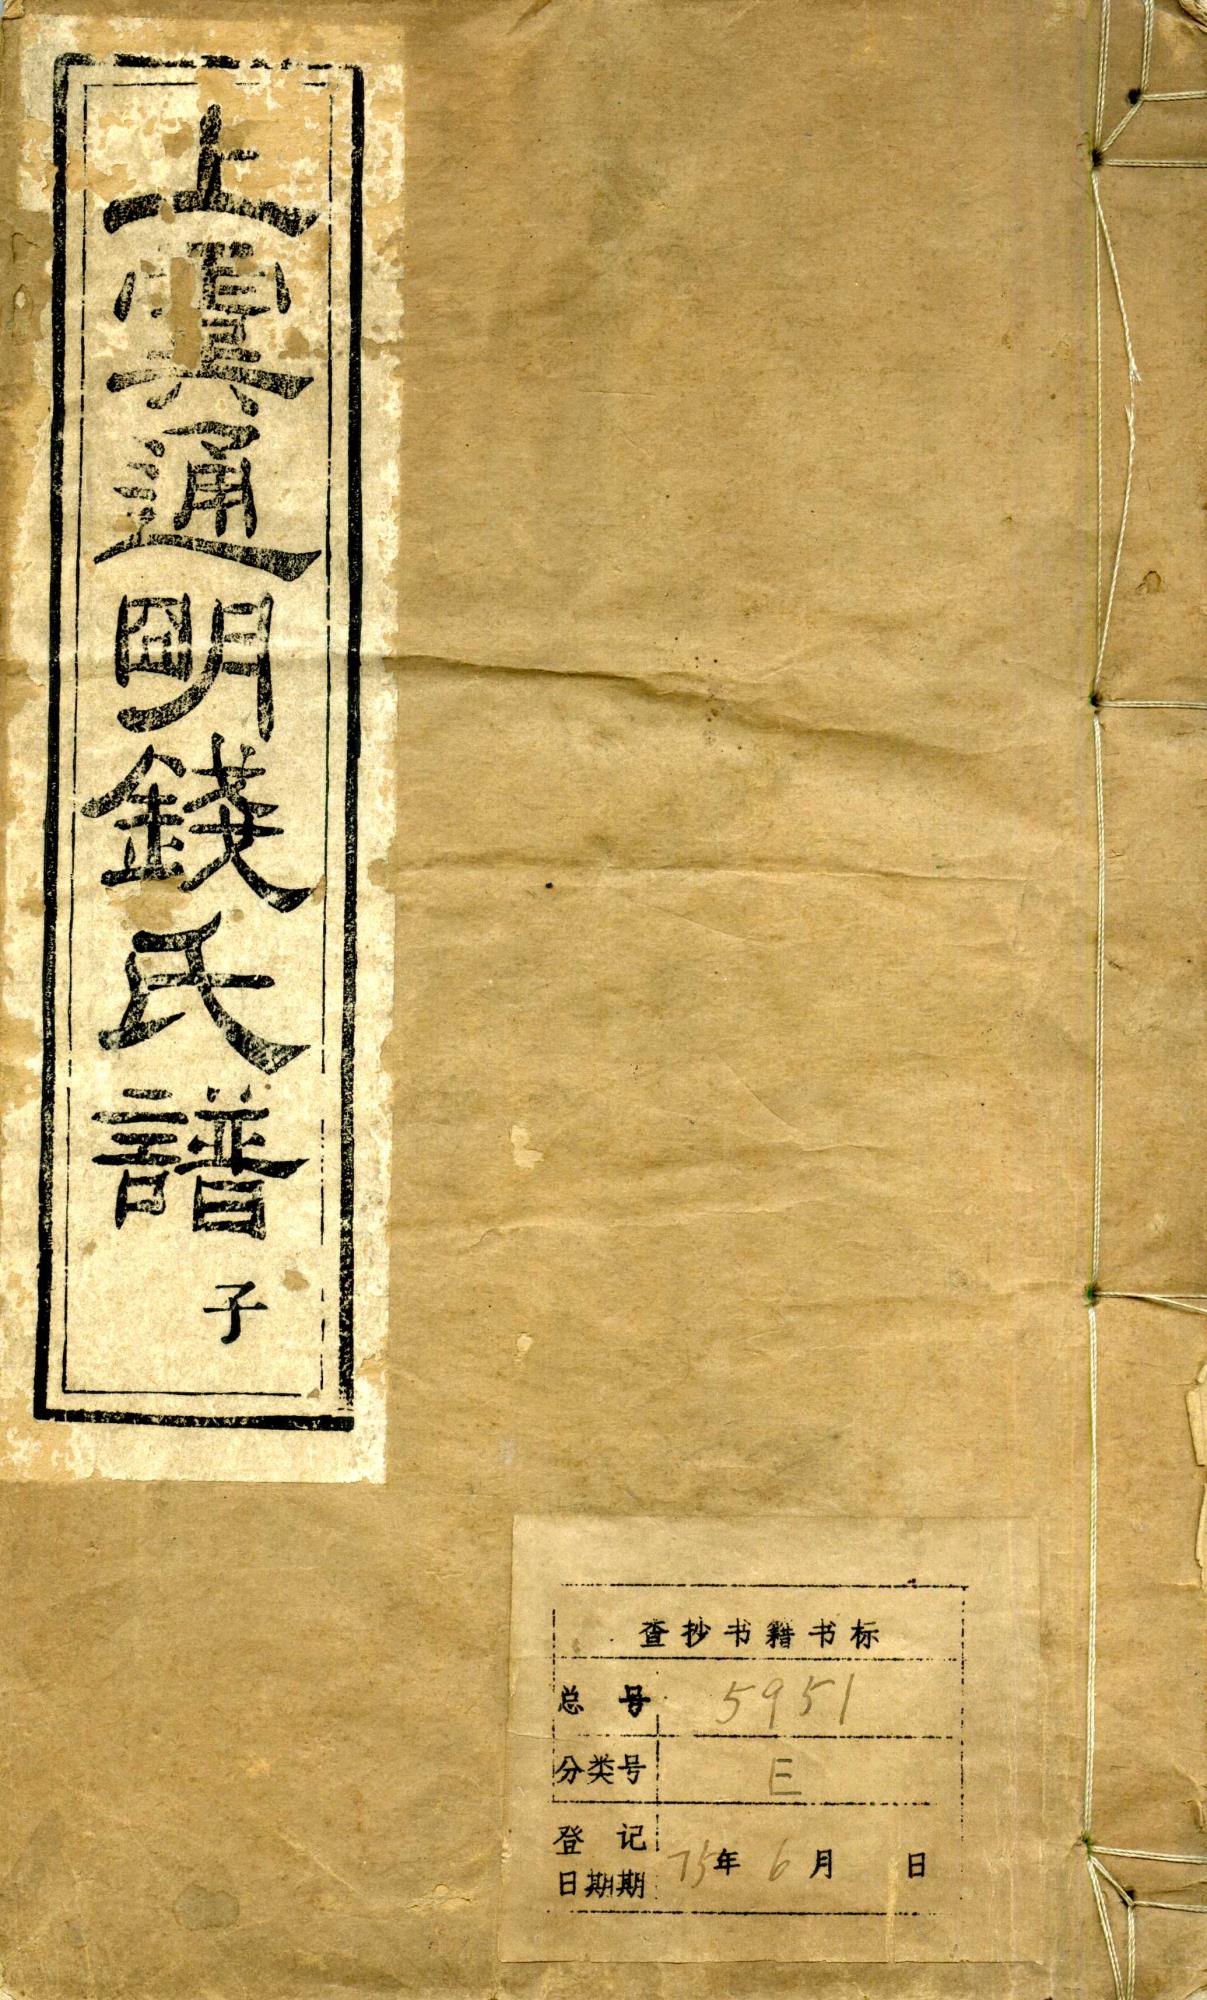 上虞通明錢氏譜
子
查抄书籍书标
总号 5951
分类号 E
登记日期期 75年6月 日